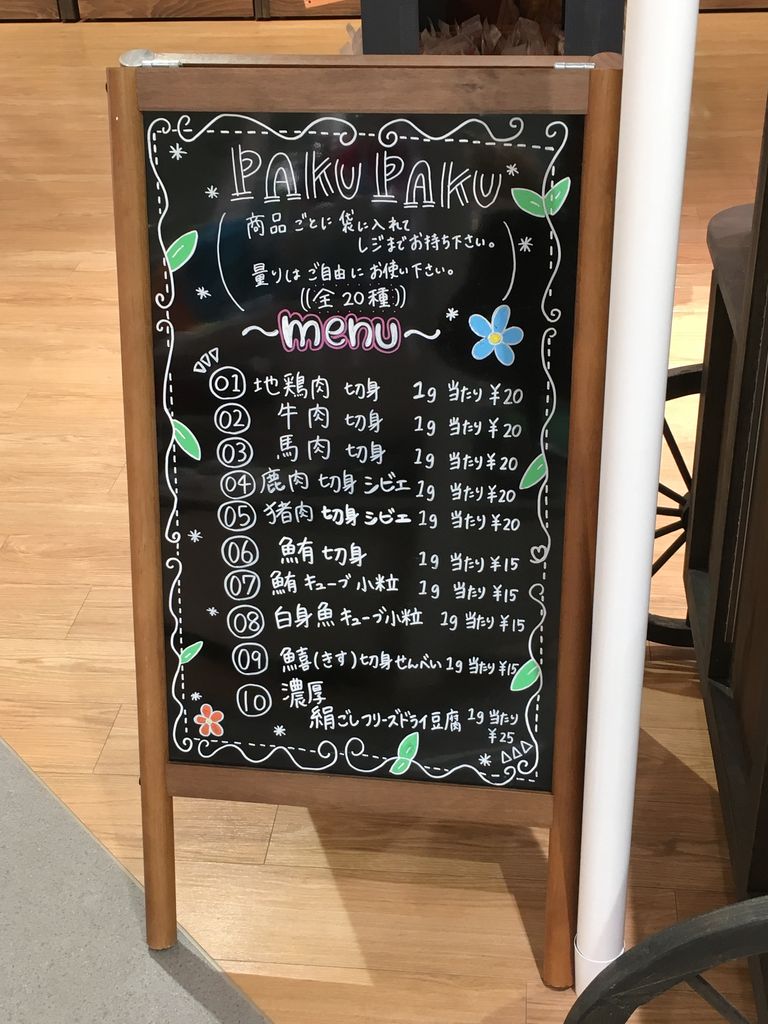 PAKU PAKU
商品ごとに袋に入れて
レジまでお持ち下さい。
量りはご自由にお使い下さい。
((全20種))
~menu~
01 地鶏肉 切身 1g 当たり ¥20
02 牛肉 切身 1g 当たり ¥20
03 馬肉 切身 1g 当たり ¥20
04 鹿肉 切身 シビエ 1g 当たり ¥20
05 猪肉 切身 シビエ 1g 当たり ¥20
06 鮪 切身 1g 当たり ¥15
07 鮪 キューブ 小粒 1g 当たり ¥15
08 白身魚 キューブ 小粒 1g 当たり ¥15
09 鱚(きす)切身せんべい 1g 当たり ¥15
10 濃厚
絹ごしフリーズドライ豆腐 1g 当たり
¥25